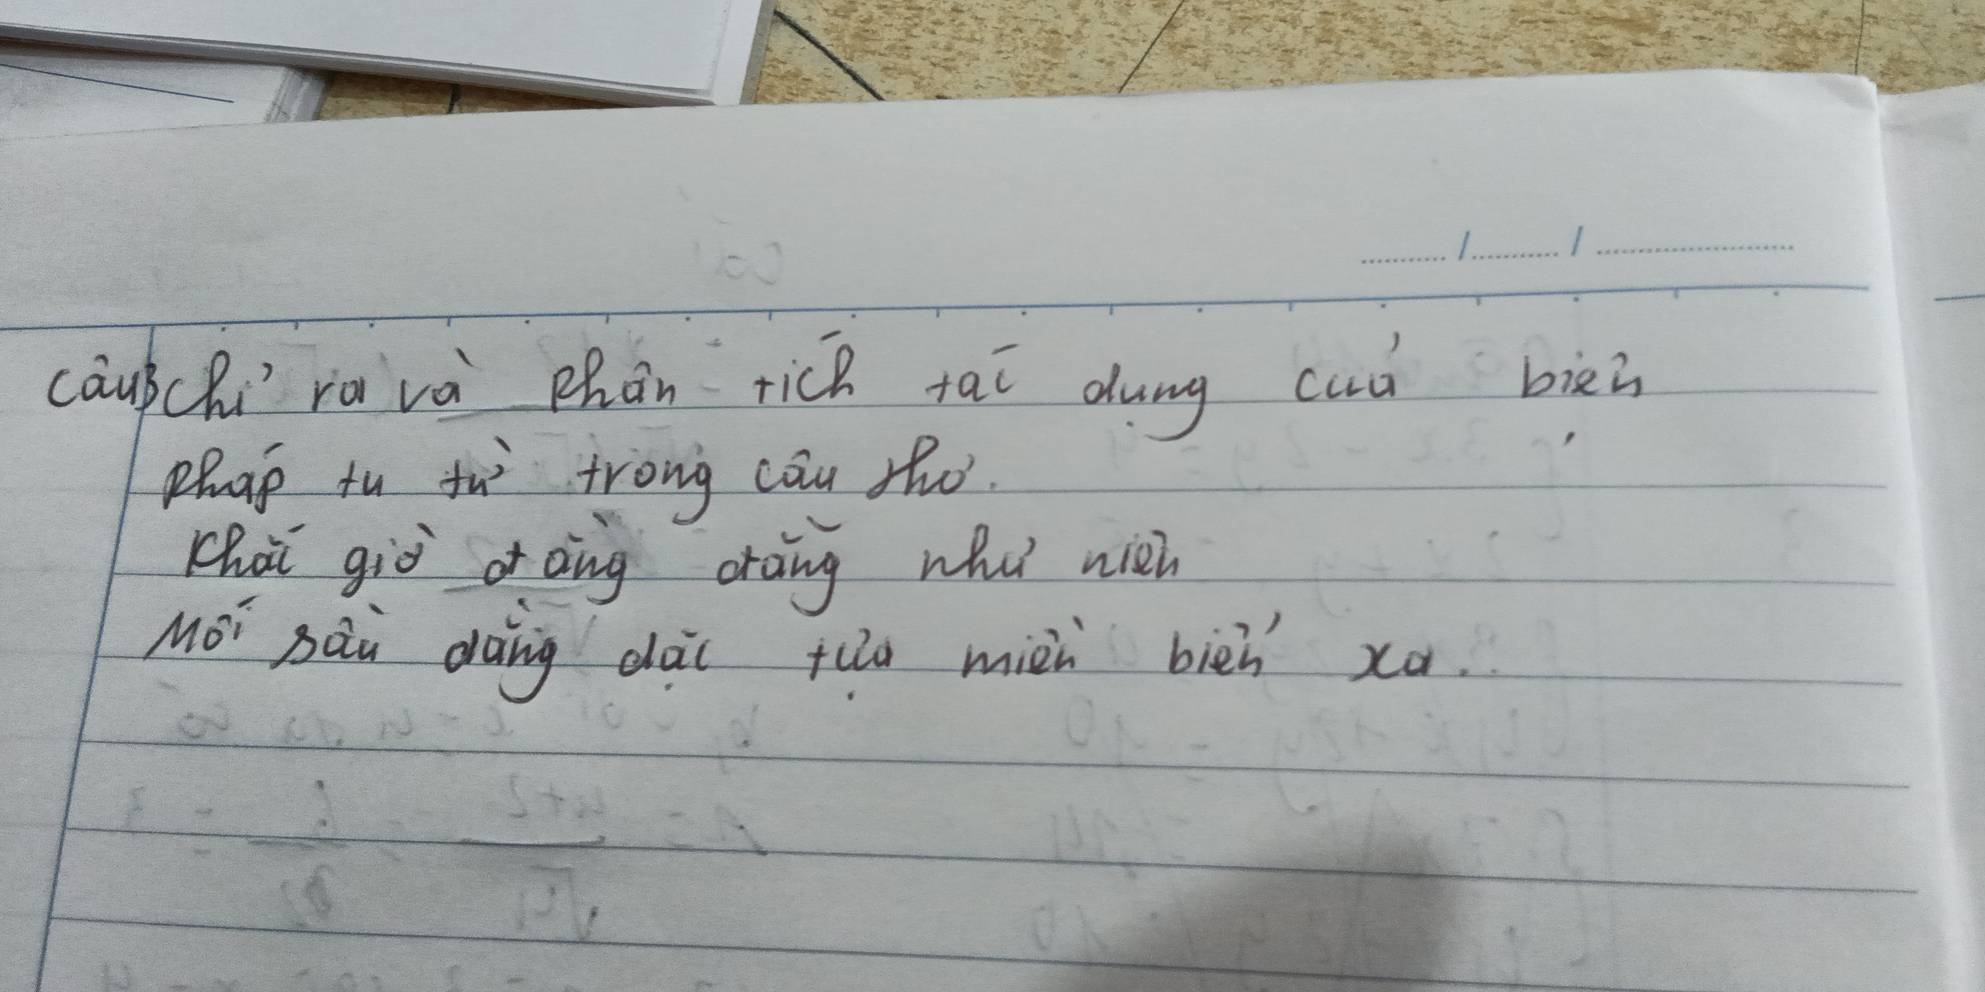 Câu3 chỉ ra và phân tích tác dụng của biện
pháp tu từ trong câu thơ.
Khắc giờ đằng đẵng như niên
Mối sầu dằng dặc tựa miền biển xa.